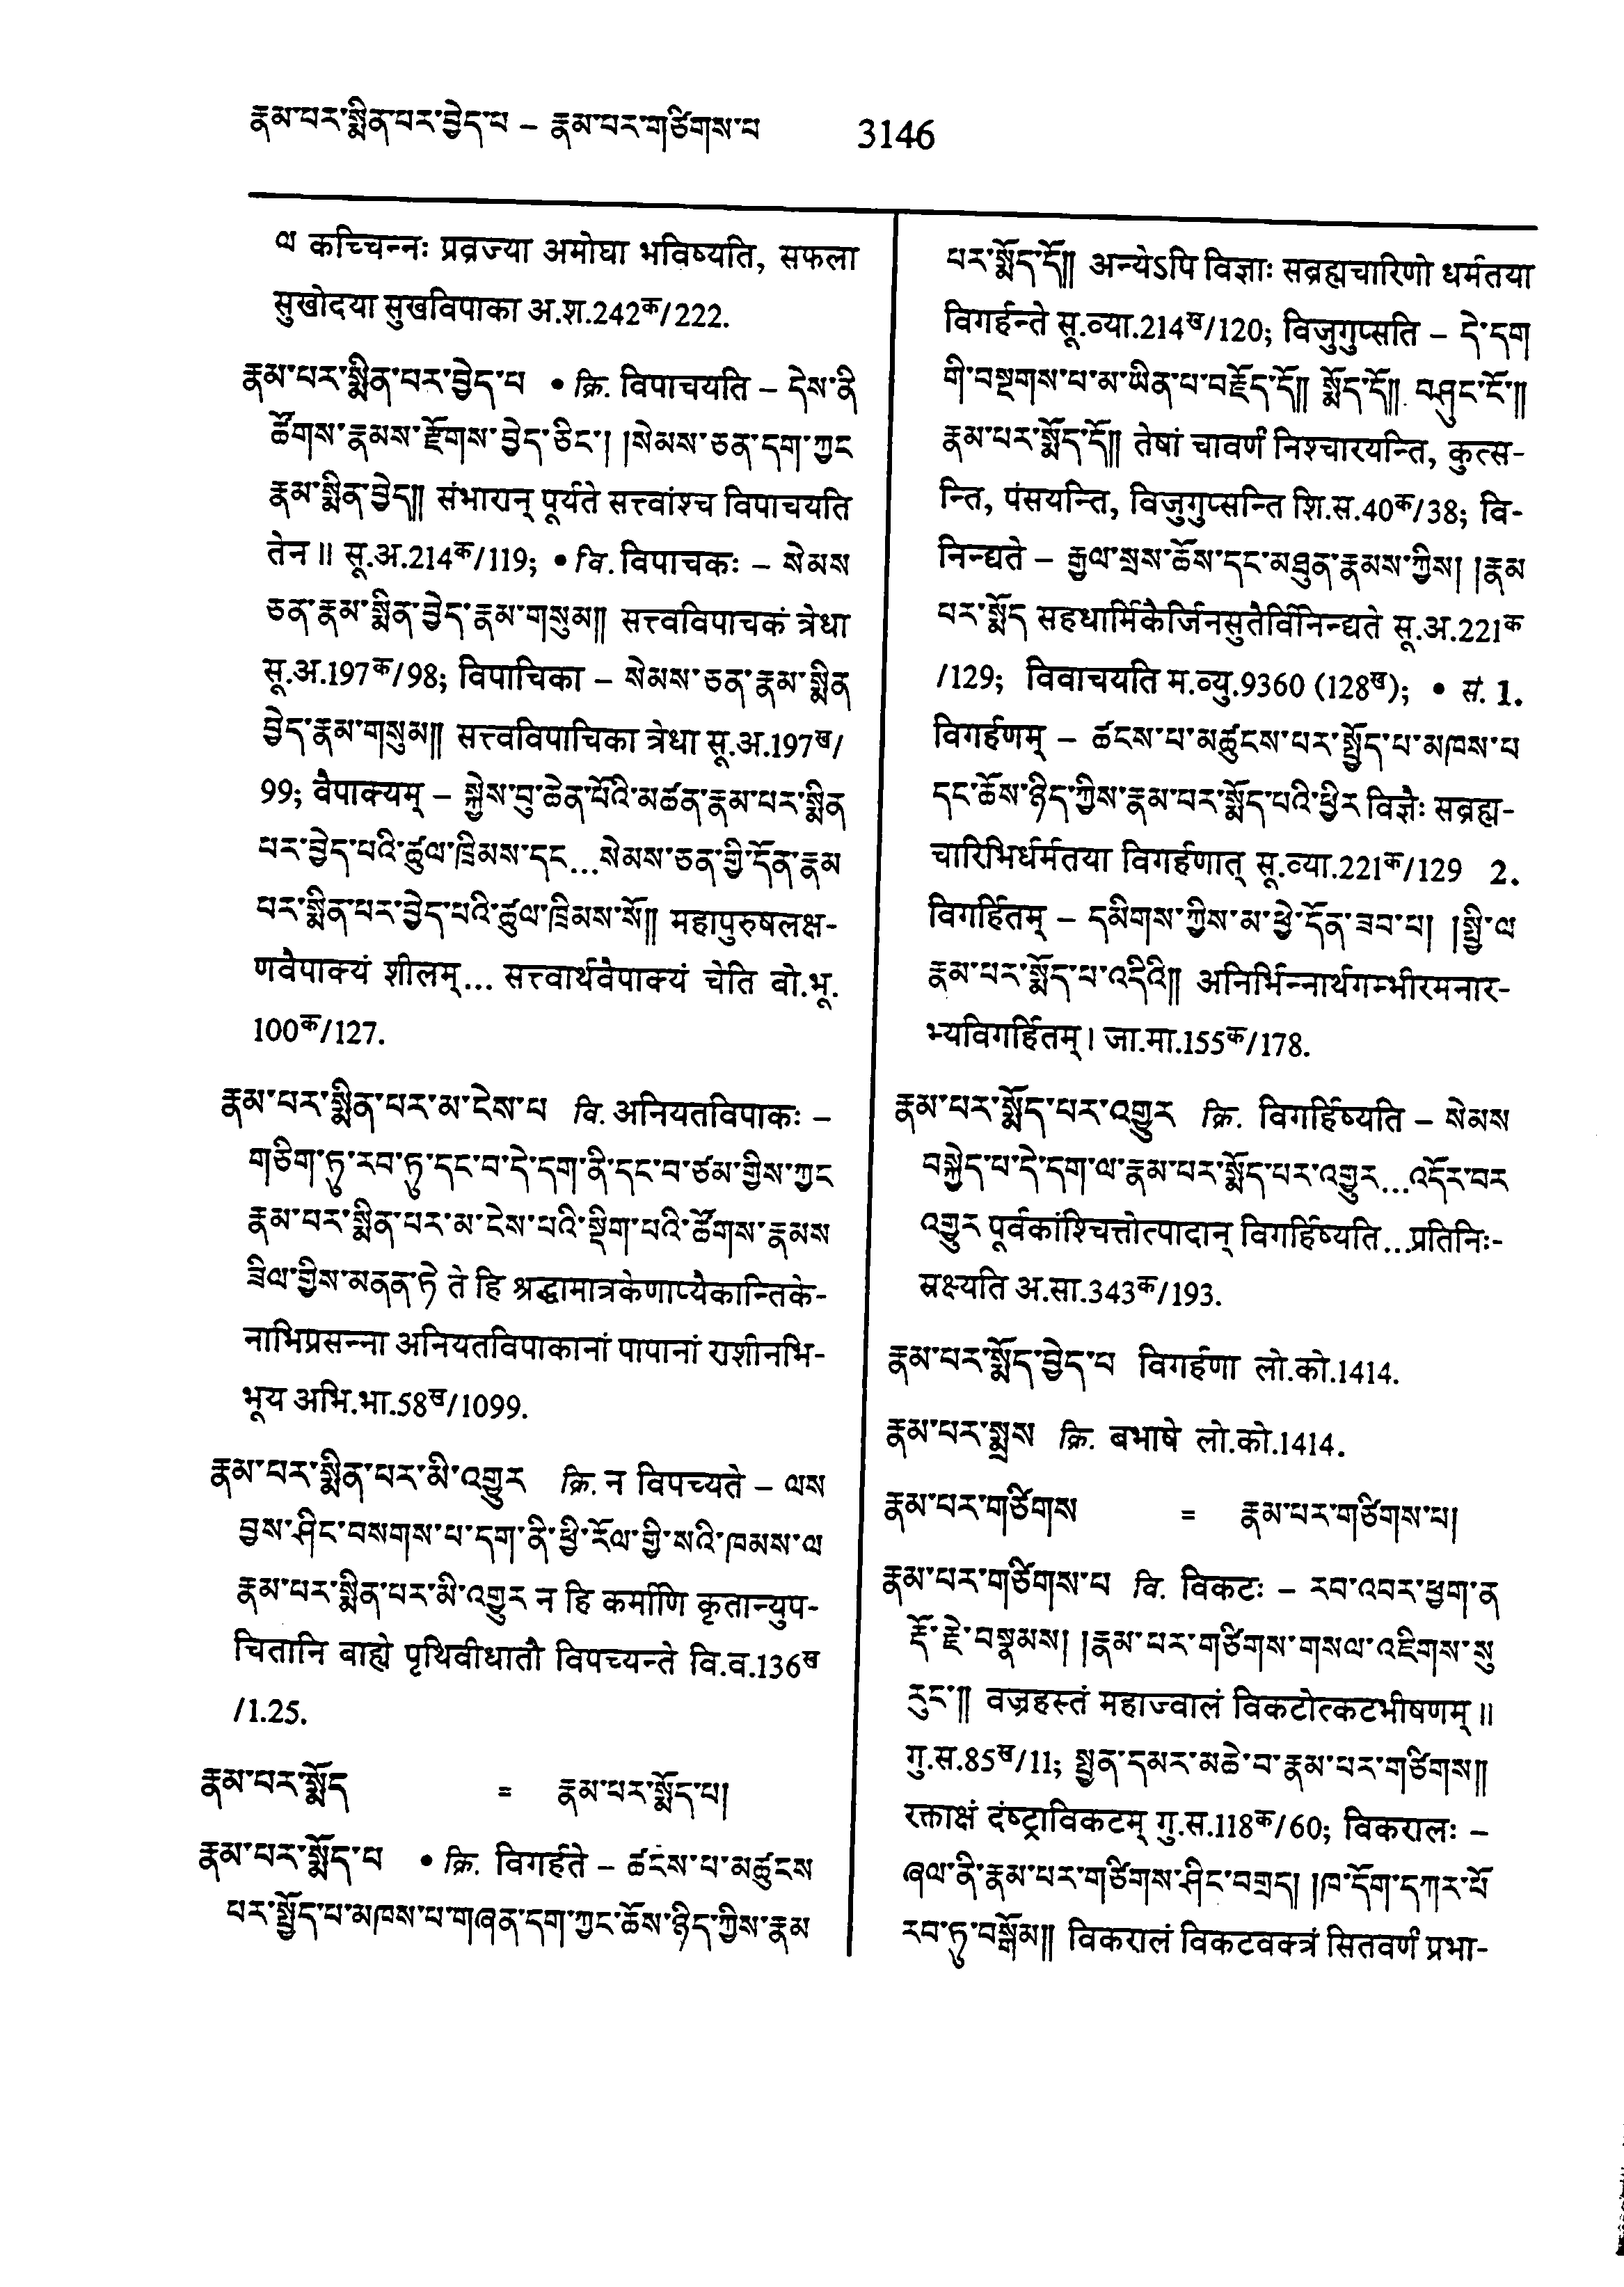 རྣམ་པར་སྨིན་པར་བྱེད་པ – རྣམ་པར་གཙིགས་པ 3146
ལ कच्चिन्नः प्रव्रज्या अमोघा भविष्यति, सफला
सुखोदया सुखविपाका अ.श.242क/222.
རྣམ་པར་སྨིན་པར་བྱེད་པ • क्रि. विपाचयति – དེས་ནི
ཚོགས་རྣམས་རྫོགས་བྱེད་ཅིང་། །སེམས་ཅན་དག་ཀྱང
རྣམ་སྨིན་བྱེད༎ संभारान् पूर्यते सत्त्वांश्च विपाचयति
तेन॥ सू.अ.214क/119; • वि. विपाचकः – སེམས
ཅན་རྣམ་སྨིན་བྱེད་རྣམ་གསུམ༎ सत्त्वविपाचकं त्रेधा
सू.अ.197क/98; विपाचिका – སེམས་ཅན་རྣམ་སྨིན
བྱེད་རྣམ་གསུམ༎ सत्त्वविपाचिका त्रेधा सू.अ.197ख/
99; वैपाक्यम् – སྐྱེས་བུ་ཆེན་པོའི་མཚན་རྣམ་པར་སྨིན
པར་བྱེད་པའི་ཚུལ་ཁྲིམས་དང...སེམས་ཅན་གྱི་དོན་རྣམ
པར་སྨིན་པར་བྱེད་པའི་ཚུལ་ཁྲིམས་སོ༎ महापुरुषलक्ष-
णवैपाक्यं शीलम्... सत्त्वार्थवैपाक्यं चेति बो.भू.
100क/127.
རྣམ་པར་སྨིན་པར་མ་ངེས་པ वि. अनियतविपाकः –
གཅིག་ཏུ་རབ་ཏུ་དང་བ་དེ་དག་ནི་དང་བ་ཙམ་གྱིས་ཀྱང
རྣམ་པར་སྨིན་པར་མ་ངེས་པའི་སྡིག་པའི་ཚོགས་རྣམས
ཟིལ་གྱིས་མནན་ཏེ ते हि श्रद्धामात्रकेणाप्यैकान्तिके-
नाभिप्रसन्ना अनियतविपाकानां पापानां राशीनभि-
भूय अभि.भा.58ख/1099.
རྣམ་པར་སྨིན་པར་མི་འགྱུར क्रि. न विपच्यते – ལས
བྱས་ཤིང་བསགས་པ་དག་ནི་ཕྱི་རོལ་གྱི་སའི་ཁམས་ལ
རྣམ་པར་སྨིན་པར་མི་འགྱུར न हि कर्माणि कृतान्युप-
चितानि बाह्ये पृथिवीधातौ विपच्यन्ते वि.व.136ख
/1.25.
རྣམ་པར་སྨོད = རྣམ་པར་སྨོད་པ།
རྣམ་པར་སྨོད་པ • क्रि. विगर्हते – ཚངས་པ་མཚུངས
པར་སྤྱོད་པ་མཁས་པ་གཞན་དག་ཀྱང་ཆོས་ཉིད་ཀྱིས་རྣམ
པར་སྨོད་དོ༎ अन्येऽपि विज्ञाः सब्रह्मचारिणो धर्मतया
विगर्हन्ते सू.व्या.214ख/120; विजुगुप्सति – དེ་དག
གི་བསྔགས་པ་མ་ཡིན་པ་བརྗོད་དོ༎ སྨོད་དོ༎ བཤུང་ངོ་༎
རྣམ་པར་སྨོད་དོ༎ तेषां चावर्णं निश्चारयन्ति, कुत्स-
न्ति, पंसयन्ति, विजुगुप्सन्ति शि.स.40क/38; वि-
निन्द्यते – རྒྱལ་སྲས་ཆོས་དང་མཐུན་རྣམས་ཀྱིས། །རྣམ
པར་སྨོད सहधार्मिकैर्जिनसुतैर्विनिन्द्यते सू.अ.221क
/129; विवाचयति म.व्यु.9360 (128ख); • सं. 1.
विगर्हणम् – ཚངས་པ་མཚུངས་པར་སྤྱོད་པ་མཁས་པ
དང་ཆོས་ཉིད་ཀྱིས་རྣམ་པར་སྨོད་པའི་ཕྱིར विज्ञैः सब्रह्म-
चारिभिर्धर्मतया विगर्हणात् सू.व्या.221क/129 2.
विगर्हितम् – དམིགས་ཀྱིས་མ་ཕྱེ་དོན་ཟབ་པ། །སྤྱི་ལ
རྣམ་པར་སྨོད་པ་འདིའི༎ अनिर्भिन्नार्थगम्भीरमनार-
भ्यविगर्हितम्। जा.मा.155क/178.
རྣམ་པར་སྨོད་པར་འགྱུར क्रि. विगर्हिष्यति – སེམས
བསྐྱེད་པ་དེ་དག་ལ་རྣམ་པར་སྨོད་པར་འགྱུར...འདོར་བར
འགྱུར पूर्वकांश्चित्तोत्पादान् विगर्हिष्यति...प्रतिनिः-
स्रक्ष्यति अ.सा.343क/193.
རྣམ་པར་སྨོད་བྱེད་པ विगर्हणा लो.को.1414.
རྣམ་པར་སྨྲས क्रि. बभाषे लो.को.1414.
རྣམ་པར་གཙིགས = རྣམ་པར་གཙིགས་པ།
རྣམ་པར་གཙིགས་པ वि. विकटः – རབ་འབར་ཕྱག་ན
རྡོ་རྗེ་བསྣམས། །རྣམ་པར་གཙིགས་གསལ་འཇིགས་སུ
རུང་༎ वज्रहस्तं महाज्वालं विकटोत्कटभीषणम्॥
गु.स.85ख/11; སྤྱན་དམར་མཆེ་བ་རྣམ་པར་གཙིགས༎
रक्ताक्षं दंष्ट्राविकटम् गु.स.118क/60; विकरालः –
ཞལ་ནི་རྣམ་པར་གཙིགས་ཤིང་བགྲད། །ཁ་དོག་དཀར་པོ
རབ་ཏུ་བསྒོམ༎ विकरालं विकटवक्त्रं सितवर्णं प्रभा-